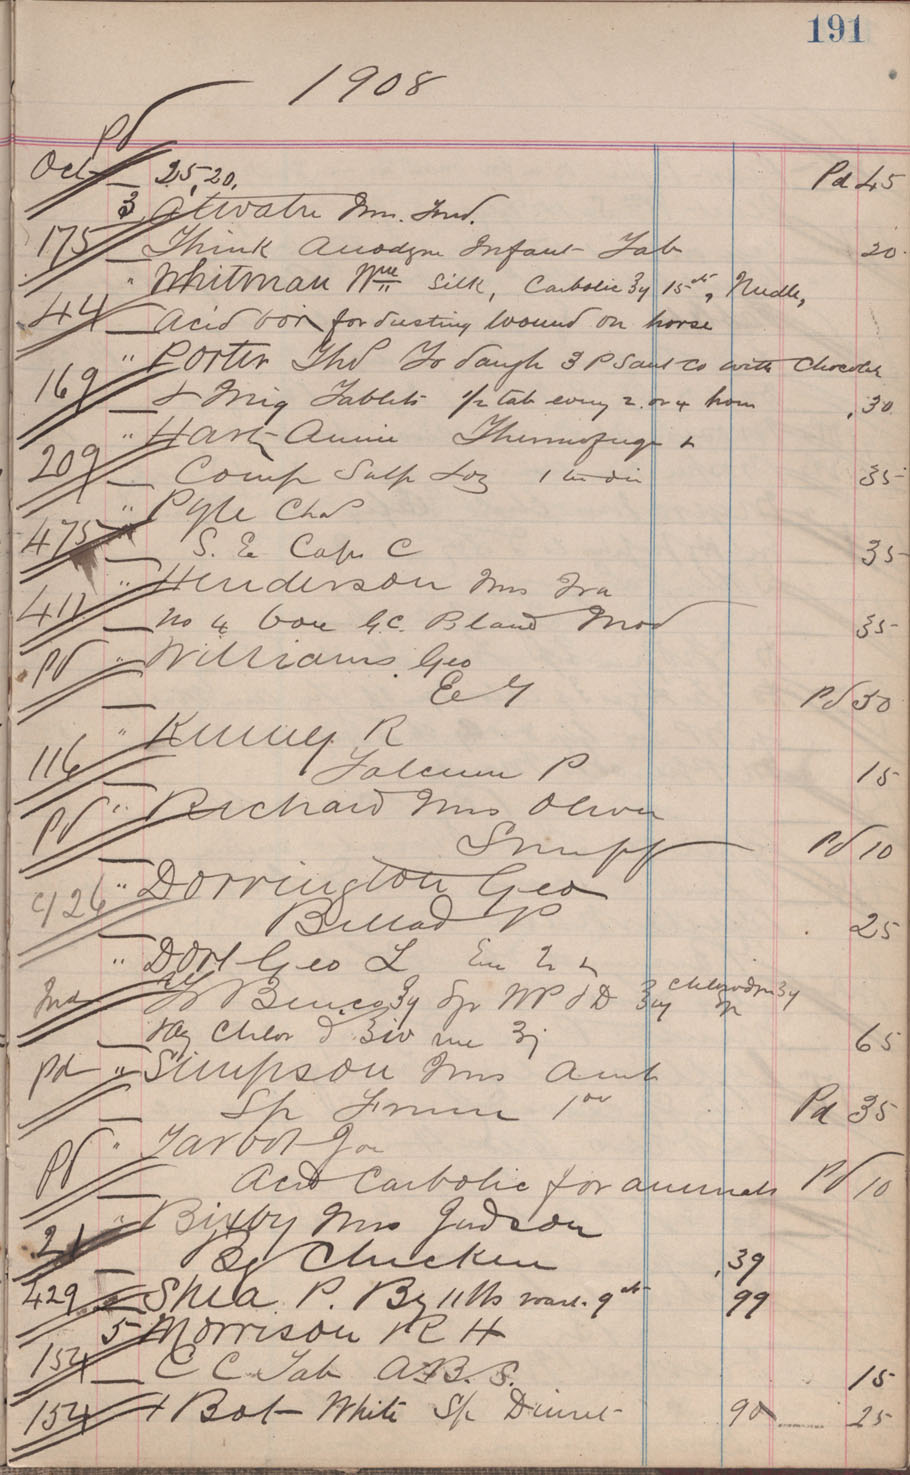 191
1908
Pd
Oct 25, 20. Pd 45
3 Atwater Mrs. Fred.
175 Think Anodyne Infant Tab 20
" Whitman Wm Silk, Carbolic ʒij 15cts, Needle,
44 Acid bor for dusting wound on horse
" Porter Thd To daugh 3 P Sant Co with Chocolate
169 & Mig Tablets 1/2 tab every 2 or 4 hour .30
" Hart Annie Thermofuge
209 Comp Sulp Loz 35
" Pyle Chas
475 S. E Caps C 35
" Henderson Mrs Ira
411 no 4 box G.C. Bland Mod 35
Pd " Williams Geo
Pd 30
" Kinney R
116 Talcum P 15
" Richard Mrs Oliver
Pd Snuff Pd 10
" Dorrington Geo
C/126 Bellad P 25
" Dort Geo L
65
Pd " Simpson Mrs
Pd 35
" Tarbot Jos
Pd Acid Carbolic for animals Pd 10
" Bixby Mrs Judson
21 By Chicken .39
429 " Shea P. By 11 lbs 9cts 99
5 Morrison R H
154 C C Tab A.B.S. 15
154 1 Bot White Sp Diuret 90 25